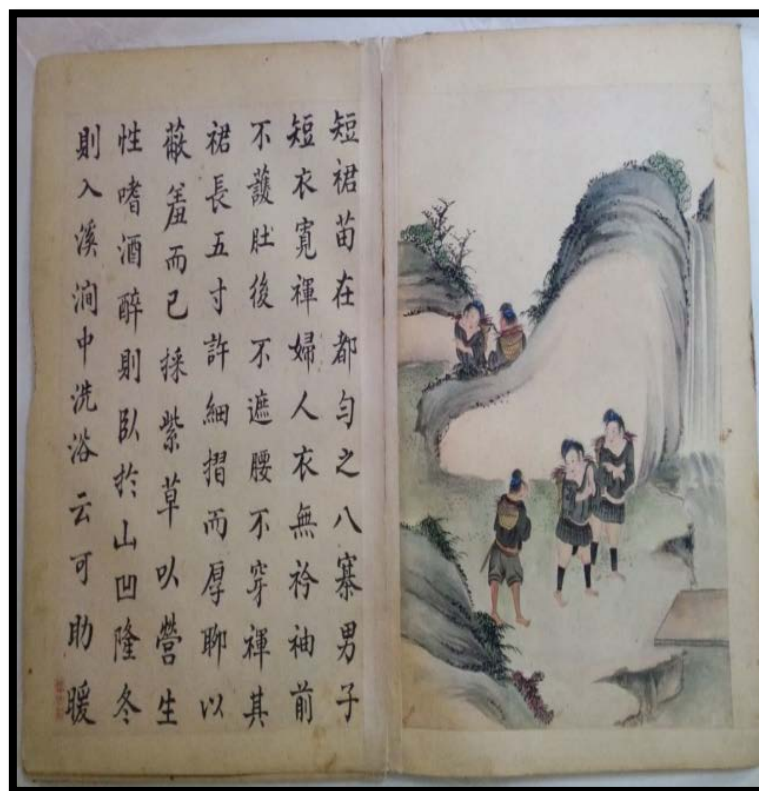 短裙苗在都匀之八寨男子
短衣寛褌婦人衣無衿袖前
不護肚後不遮腰不穿褌其
裙長五寸許細摺而厚聊以
蔽羞而已採紫草以營生
性嗜酒醉則臥於山凹隆冬
則入溪澗中洗浴云可助暖